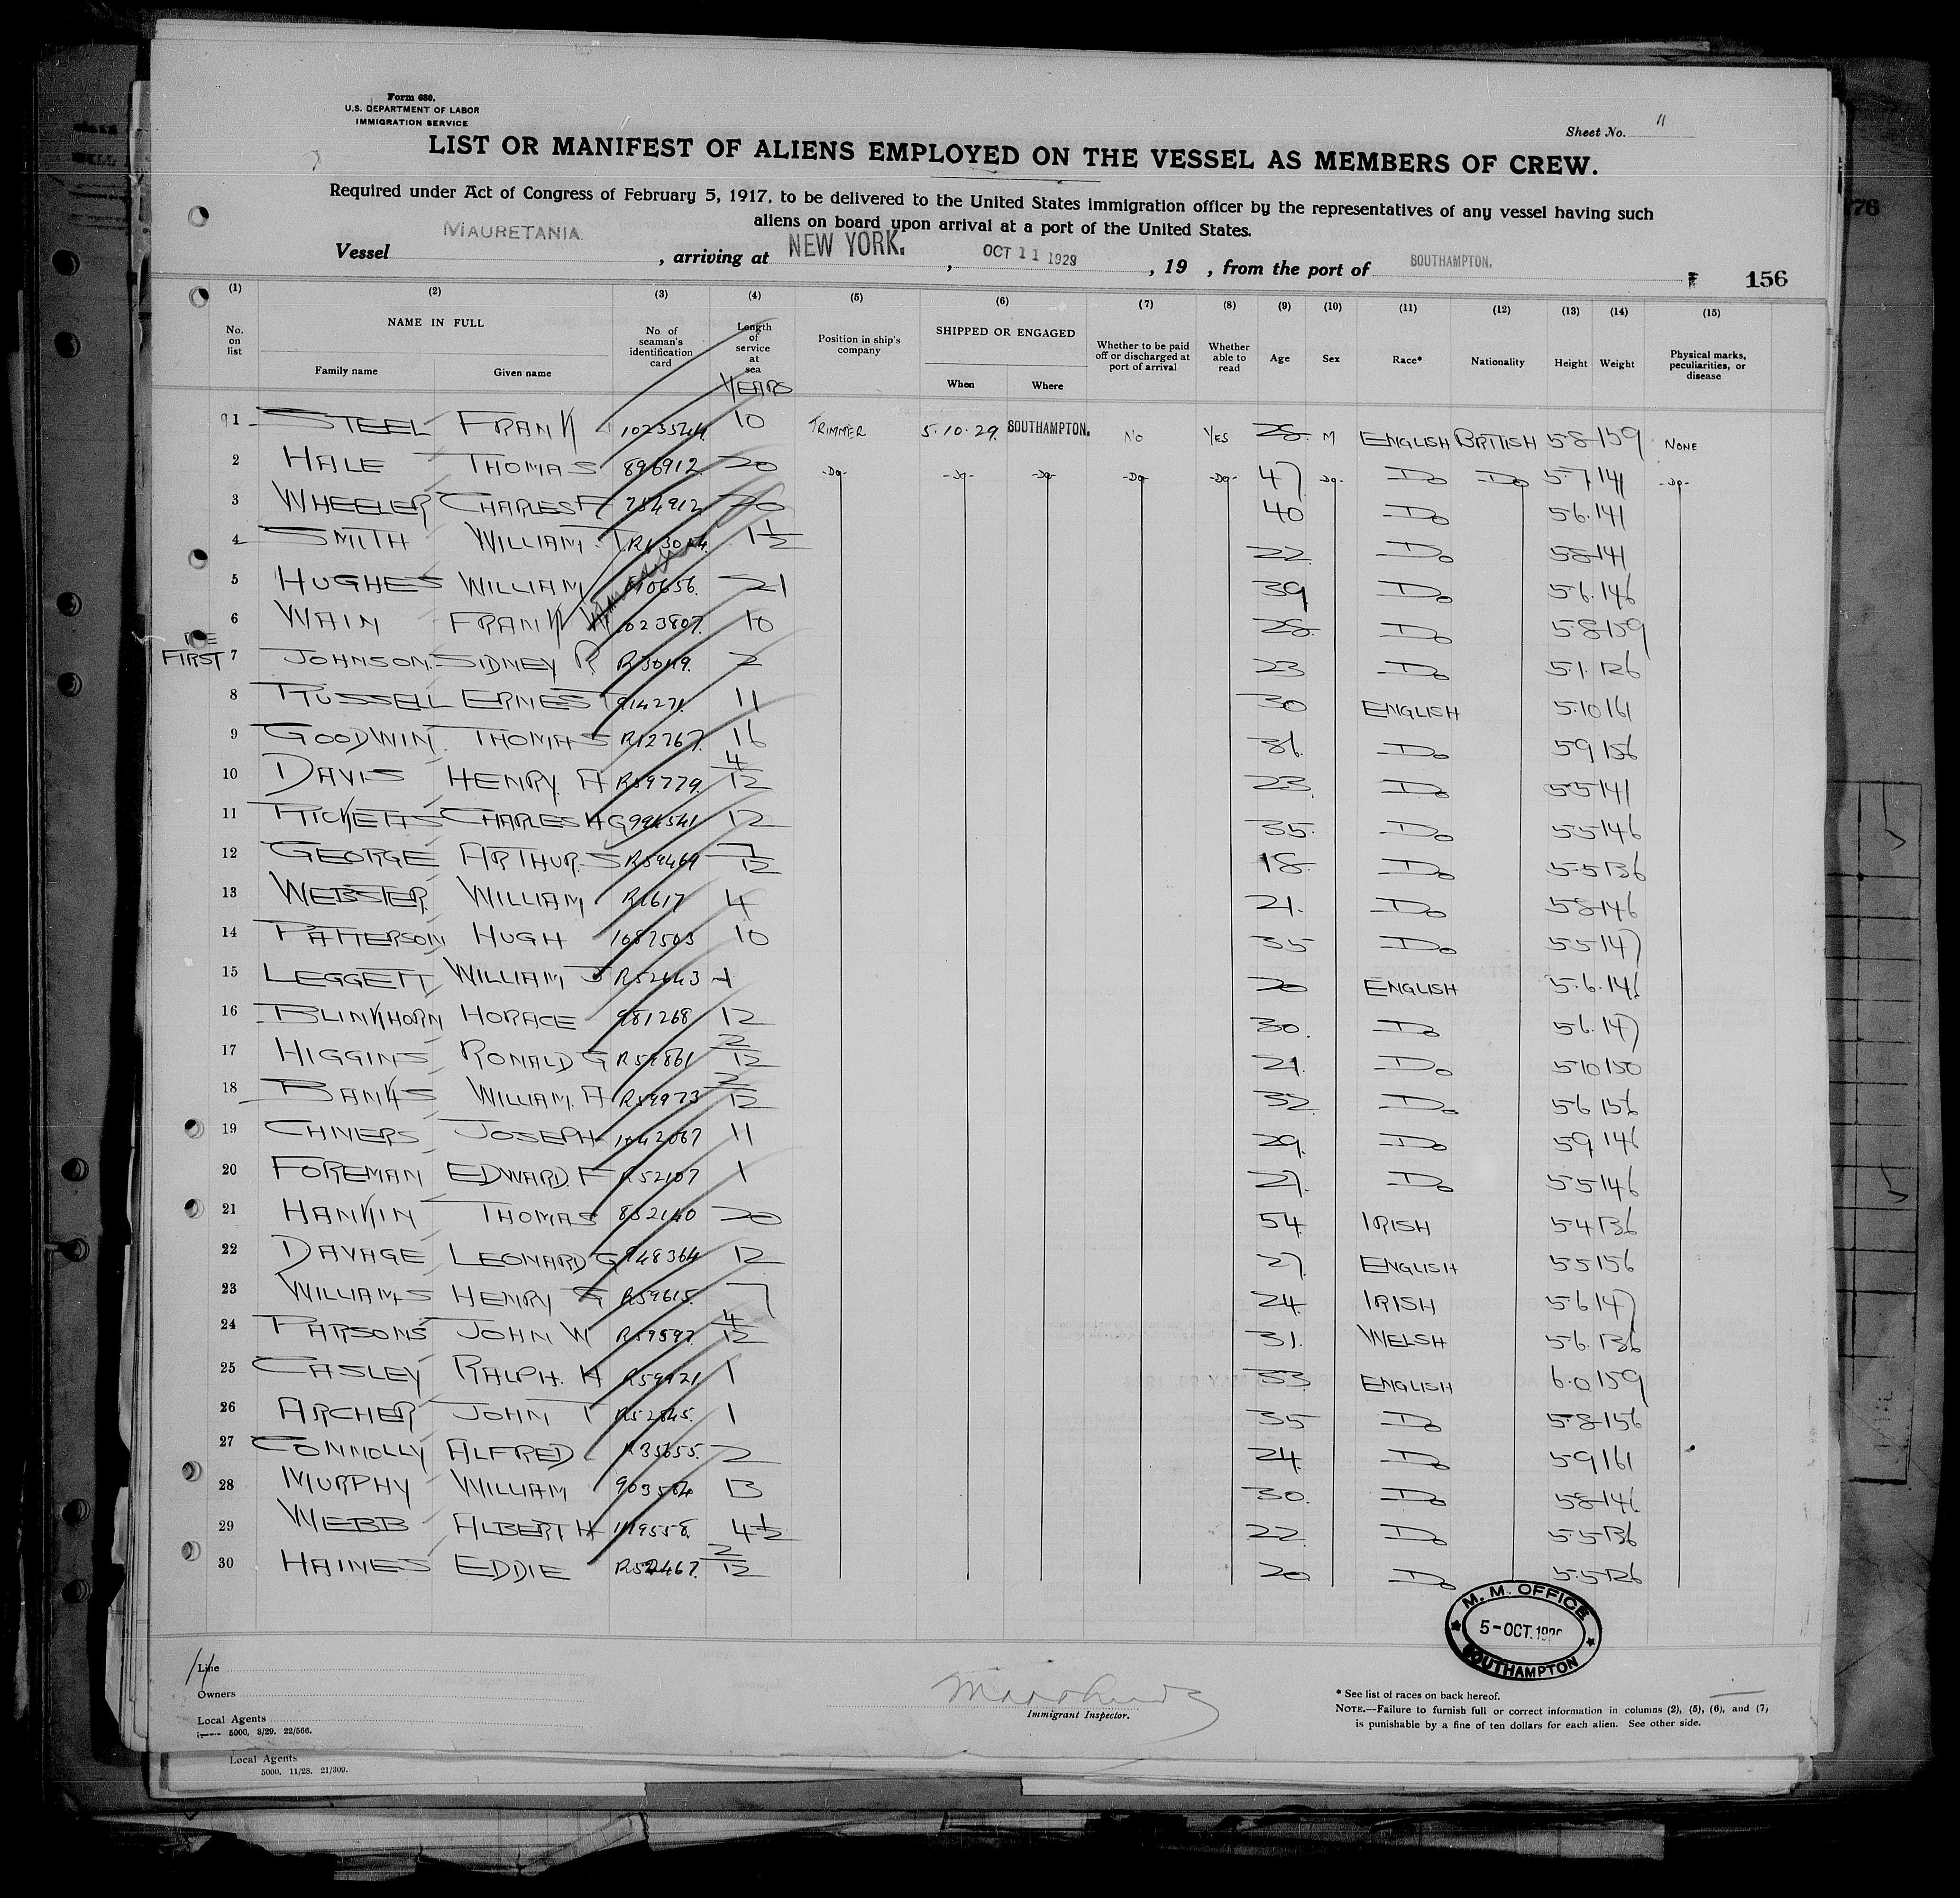 Form 680.
U.S. DEPARTMENT OF LABOR
IMMIGRATION SERVICE
Sheet No. 11
LIST OR MANIFEST OF ALIENS EMPLOYED ON THE VESSEL AS MEMBERS OF CREW.
Required under Act of Congress of February 5, 1917, to be delivered to the United States immigration officer by the representatives of any vessel having such
aliens on board upon arrival at a port of the United States.
Vessel MAURETANIA. , arriving at NEW YORK. , OCT 11 1929 , 19 , from the port of SOUTHAMPTON.
156
(1) (2) (3) (4) (5) (6) (7) (8) (9) (10) (11) (12) (13) (14) (15)
No. on list NAME IN FULL Family name Given name No. of seaman's identification card Length of service at sea YEARS Position in ship's company SHIPPED OR ENGAGED When Where Whether to be paid off or discharged at port of arrival Whether able to read Age Sex Race* Nationality Height Weight Physical marks, peculiarities, or disease
1 STEEL FRANK 10 TRIMMER 5.10.29. SOUTHAMPTON. NO YES 28 M ENGLISH BRITISH 5-8 159 NONE
2 HALE THOMAS 896912 20 -Do- -Do- -Do- -Do- -Do- 47 -Do- -Do -Do 5-7 141 -Do-
3 WHEELER CHARLES F 784912 20 40 -Do 5.6. 141
4 SMITH WILLIAM T 1½ 22 -Do 5-8 141
5 HUGHES WILLIAM 21 39 -Do 5.6. 146
6 WAIN FRANK W 1023807. 10 28 -Do 5-8 159
FIRST 7 JOHNSON. SIDNEY R 2 23 -Do 5.1. 126
8 RUSSELL ERNEST 914271. 11 30 ENGLISH 5.10 161
9 GOODWIN. THOMAS R12767. 16 36. -Do 5 9 156
10 DAVIS HENRY. A R59779. 4/12 23. -Do 5 5 141
11 RICKETTS CHARLES H G 994541 12 35. -Do 5 5 146
12 GEORGE ARTHUR. S R59469 7/12 18 -Do 5-5 136
13 WEBSTER. WILLIAM R1617 4 21. -Do 5 8 146
14 PATTERSON HUGH 1087503 10 35 -Do 5 5 147
15 LEGGETT WILLIAM J 1 20 ENGLISH 5.6.146
16 BLINKHORN HORACE 981268 12 30. -Do 5 6. 147
17 HIGGINS RONALD G R59861 2/12 21. -Do 5 10 150
18 BANKS WILLIAM. A R59973 2/12 32 -Do 5 6 156
19 CHIVERS JOSEPH 1042067 11 29. -Do 5 9 146
20 FOREMAN EDWARD. F R52107 1 27. -Do 5 5 146
21 HANKIN THOMAS 852140 20 54. IRISH 5 4 136
22 DAVAGE LEONARD G 948364 12 27 ENGLISH 5 5 156
23 WILLIAMS HENRY G R59615. 7 24 IRISH 5 6 147
24 PARSONS JOHN W R59597. 4/12 31. WELSH 5 6. 136
25 CASLEY RALPH. H R59921 1 33 ENGLISH 6.0 159
26 ARCHER JOHN T R52845. 1 35 -Do 5-8 156
27 CONNOLLY ALFRED R35655. 2 24 -Do 5 9 161
28 MURPHY WILLIAM 903584 13 30. -Do 5 8 146.
29 WEBB ALBERT H 1119558. 4½ 22 -Do 5.5 136
30 HAINES EDDIE R52467. 2/12 20 -Do 5.5 126
M. M. OFFICE
5-OCT.192
SOUTHAMPTON
Line
Owners
Local Agents
5000. 3/29. 22/566.
Immigrant Inspector.
* See list of races on back hereof.
NOTE.—Failure to furnish full or correct information in columns (2), (5), (6), and (7)
is punishable by a fine of ten dollars for each alien. See other side.
Local Agents
5000. 11/28. 21/309.
76